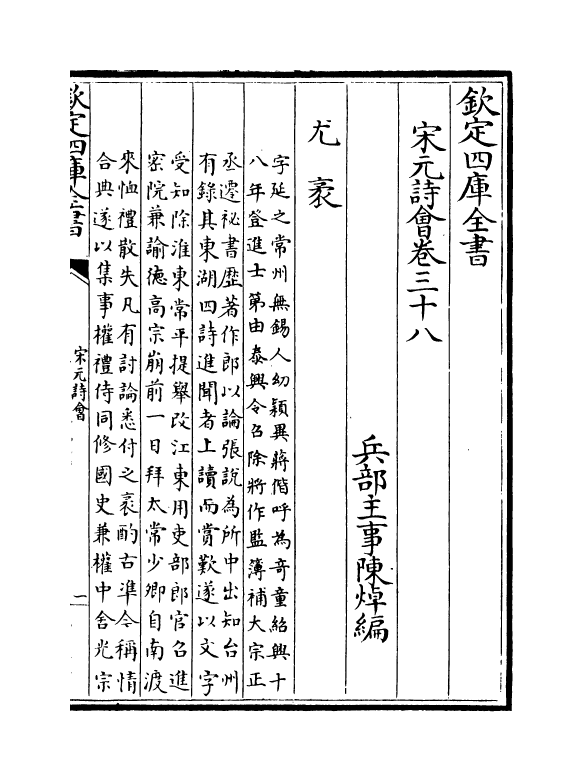 欽定四庫全書
宋元詩會卷三十八
兵部主事陳焯編
尤袤
字延之常州無錫人幼穎異蔣偕呼為奇童紹興十
八年登進士第由泰興令召除將作監簿補大宗正
丞遷祕書歴著作郎以論張說為所中出知台州
有錄其東湖四詩進聞者上讀而賞歎遂以文字
受知除淮東常平提舉改江東用吏部郎官召進
密院兼諭德高宗崩前一日拜太常少卿自南渡
來恤禮散失凡有討論悉付之袤酌古準今稱情
合典遂以集事權禮侍同修國史兼權中舍光宗
欽定四庫全書
宋元詩會
一